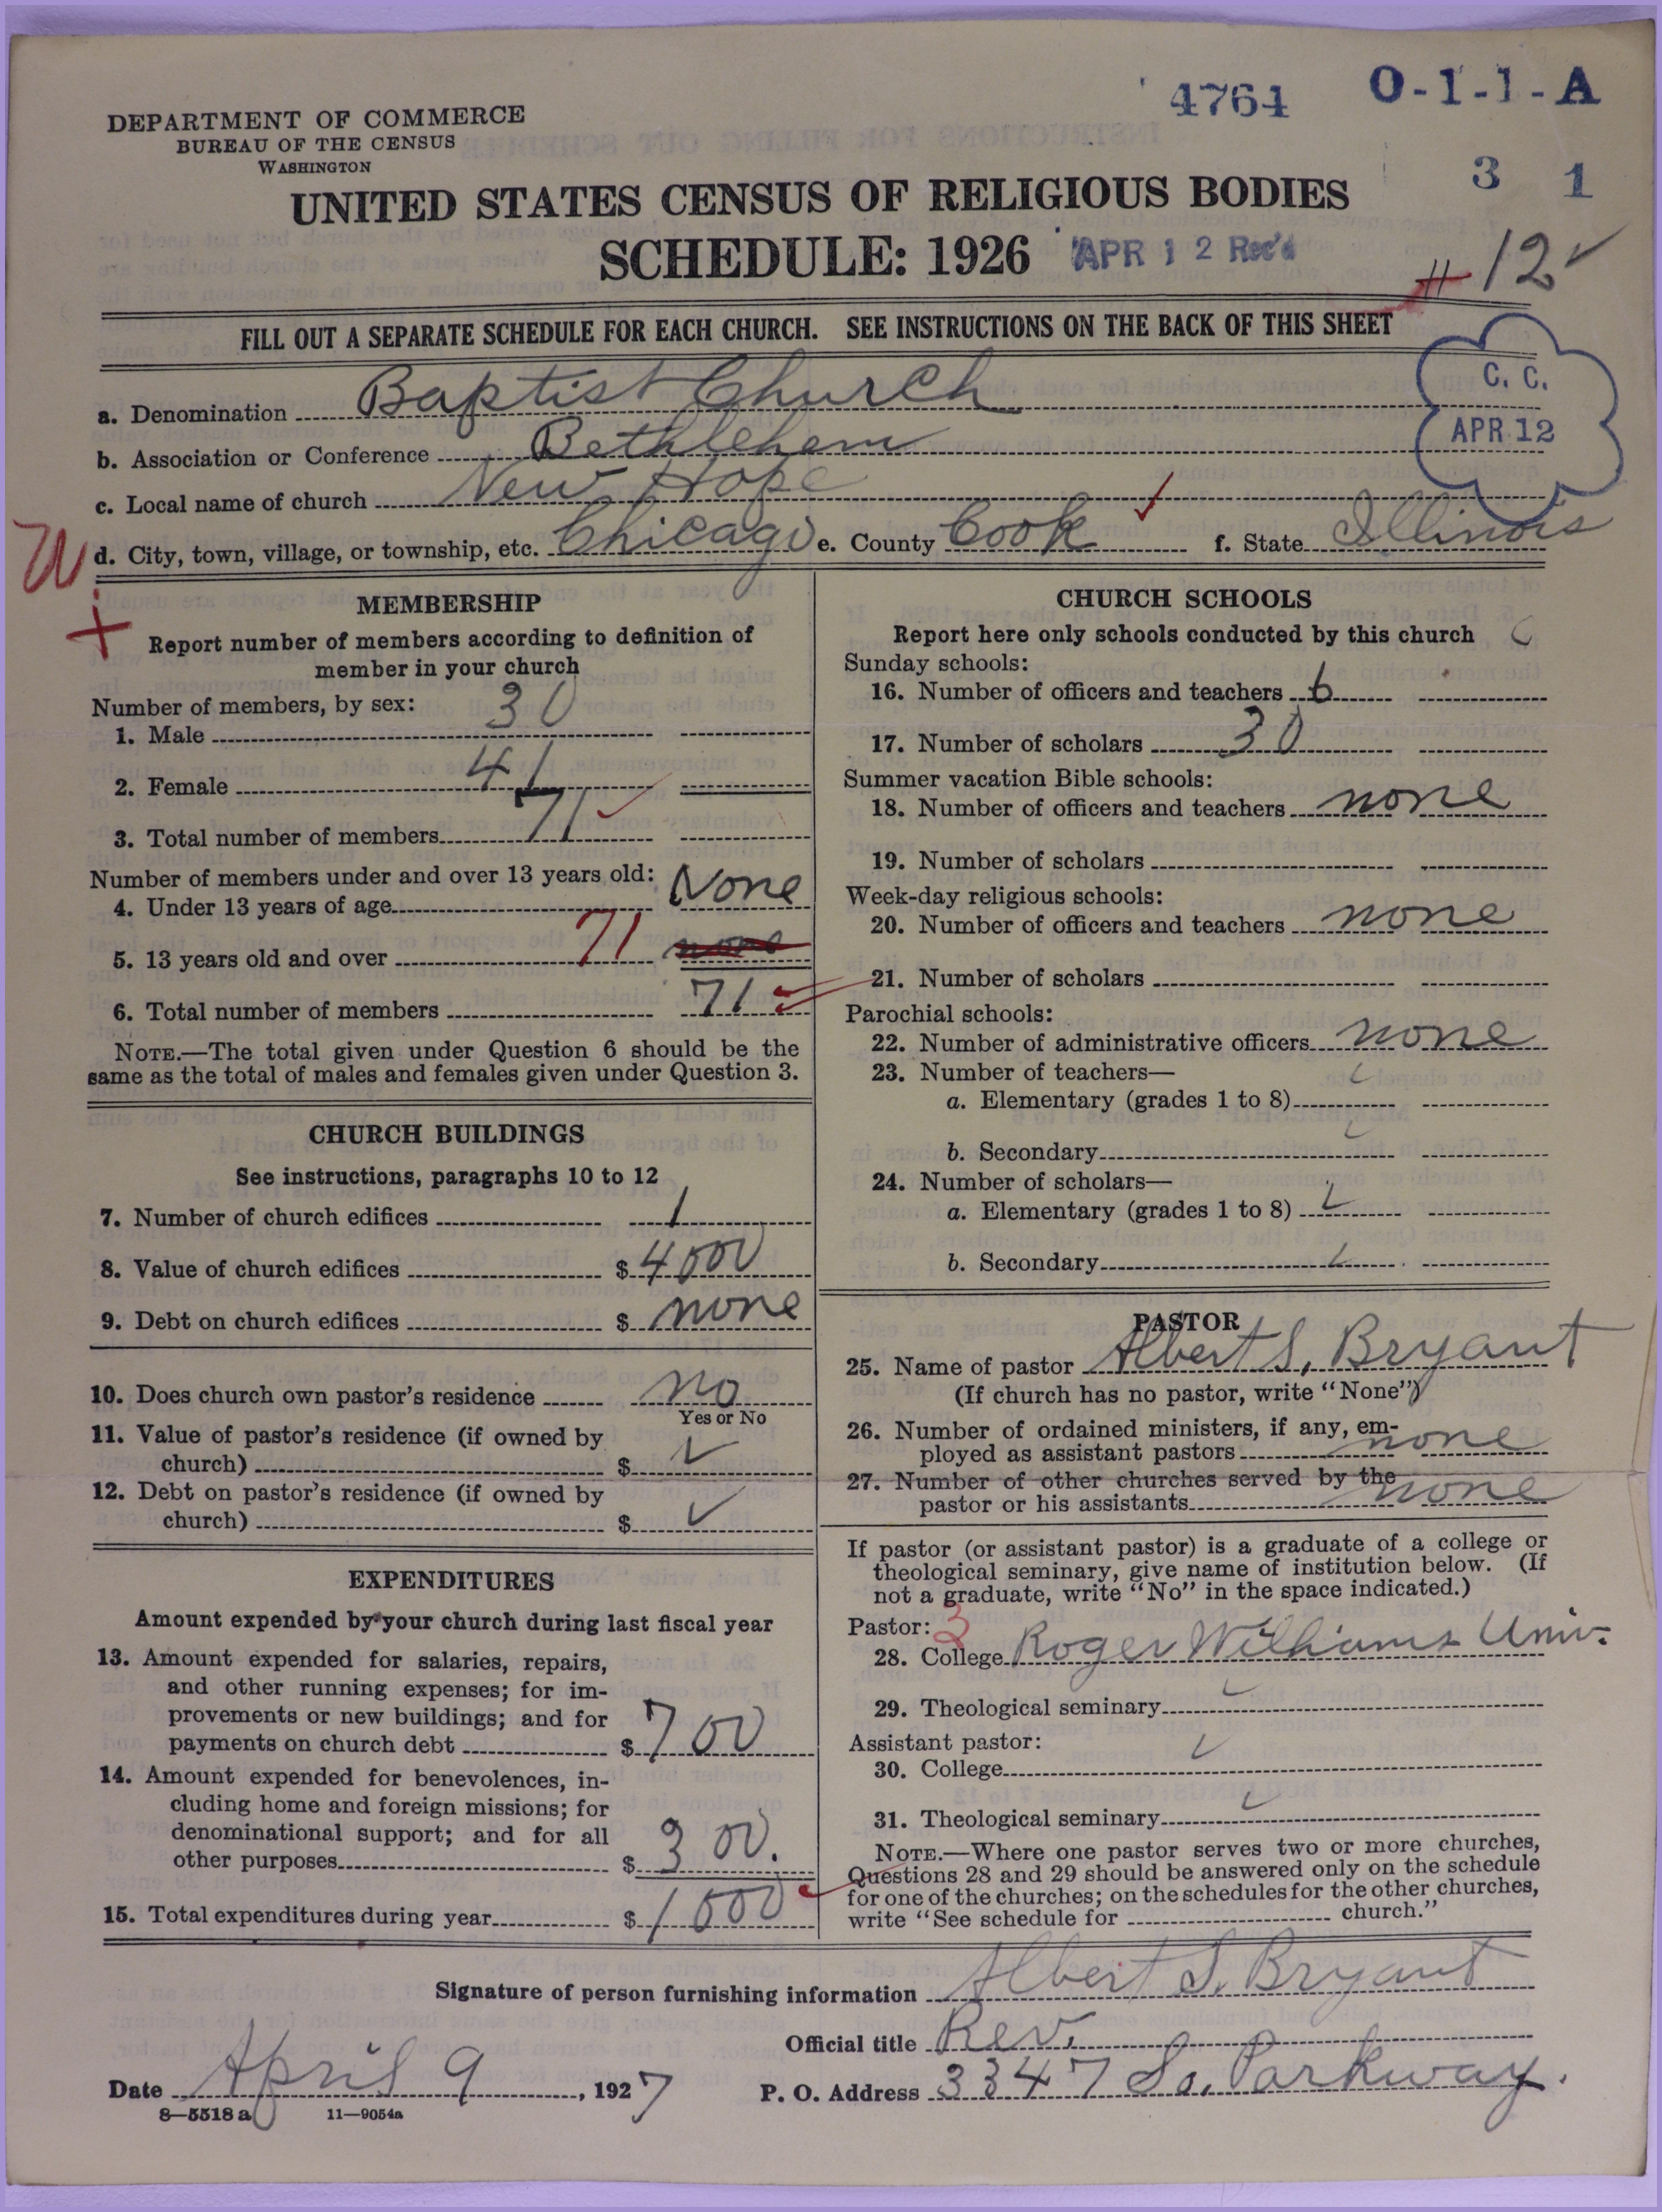 4764 O-1-1-A
DEPARTMENT OF COMMERCE
BUREAU OF THE CENSUS
WASHINGTON
3 1
UNITED STATES CENSUS OF RELIGIOUS BODIES
SCHEDULE: 1926 APR 12 Rec'd
12
FILL OUT A SEPARATE SCHEDULE FOR EACH CHURCH. SEE INSTRUCTIONS ON THE BACK OF THIS SHEET
C. C.
APR 12
a. Denomination Baptist Church
b. Association or Conference Bethlehem
c. Local name of church New Hope
d. City, town, village, or township, etc. Chicago e. County Cook f. State Illinois
MEMBERSHIP
Report number of members according to definition of
member in your church
Number of members, by sex:
1. Male 30
2. Female 41
3. Total number of members 71
Number of members under and over 13 years old:
4. Under 13 years of age None
5. 13 years old and over 71 none
6. Total number of members 71
NOTE.—The total given under Question 6 should be the
same as the total of males and females given under Question 3.
CHURCH BUILDINGS
See instructions, paragraphs 10 to 12
7. Number of church edifices 1
8. Value of church edifices $ 4000
9. Debt on church edifices $ none
10. Does church own pastor's residence no
Yes or No
11. Value of pastor's residence (if owned by
church) $
12. Debt on pastor's residence (if owned by
church) $
EXPENDITURES
Amount expended by your church during last fiscal year
13. Amount expended for salaries, repairs,
and other running expenses; for im-
provements or new buildings; and for
payments on church debt $ 700
14. Amount expended for benevolences, in-
cluding home and foreign missions; for
denominational support; and for all
other purposes $ 300.
15. Total expenditures during year $ 1000
CHURCH SCHOOLS
Report here only schools conducted by this church
Sunday schools:
16. Number of officers and teachers 6
17. Number of scholars 30
Summer vacation Bible schools:
18. Number of officers and teachers none
19. Number of scholars
Week-day religious schools:
20. Number of officers and teachers none
21. Number of scholars
Parochial schools:
22. Number of administrative officers none
23. Number of teachers—
a. Elementary (grades 1 to 8)
b. Secondary
24. Number of scholars—
a. Elementary (grades 1 to 8)
b. Secondary
PASTOR
25. Name of pastor Albert S. Bryant
(If church has no pastor, write "None")
26. Number of ordained ministers, if any, em-
ployed as assistant pastors none
27. Number of other churches served by the
pastor or his assistants none
If pastor (or assistant pastor) is a graduate of a college or
theological seminary, give name of institution below. (If
not a graduate, write "No" in the space indicated.)
Pastor: 3
28. College Roger Williams Univ.
29. Theological seminary
Assistant pastor:
30. College
31. Theological seminary
NOTE.—Where one pastor serves two or more churches,
Questions 28 and 29 should be answered only on the schedule
for one of the churches; on the schedules for the other churches,
write "See schedule for church."
Signature of person furnishing information Albert S. Bryant
Official title Rev.
Date April 9, 1927 P. O. Address 3347 So. Parkway.
8—5518 a 11—9054a